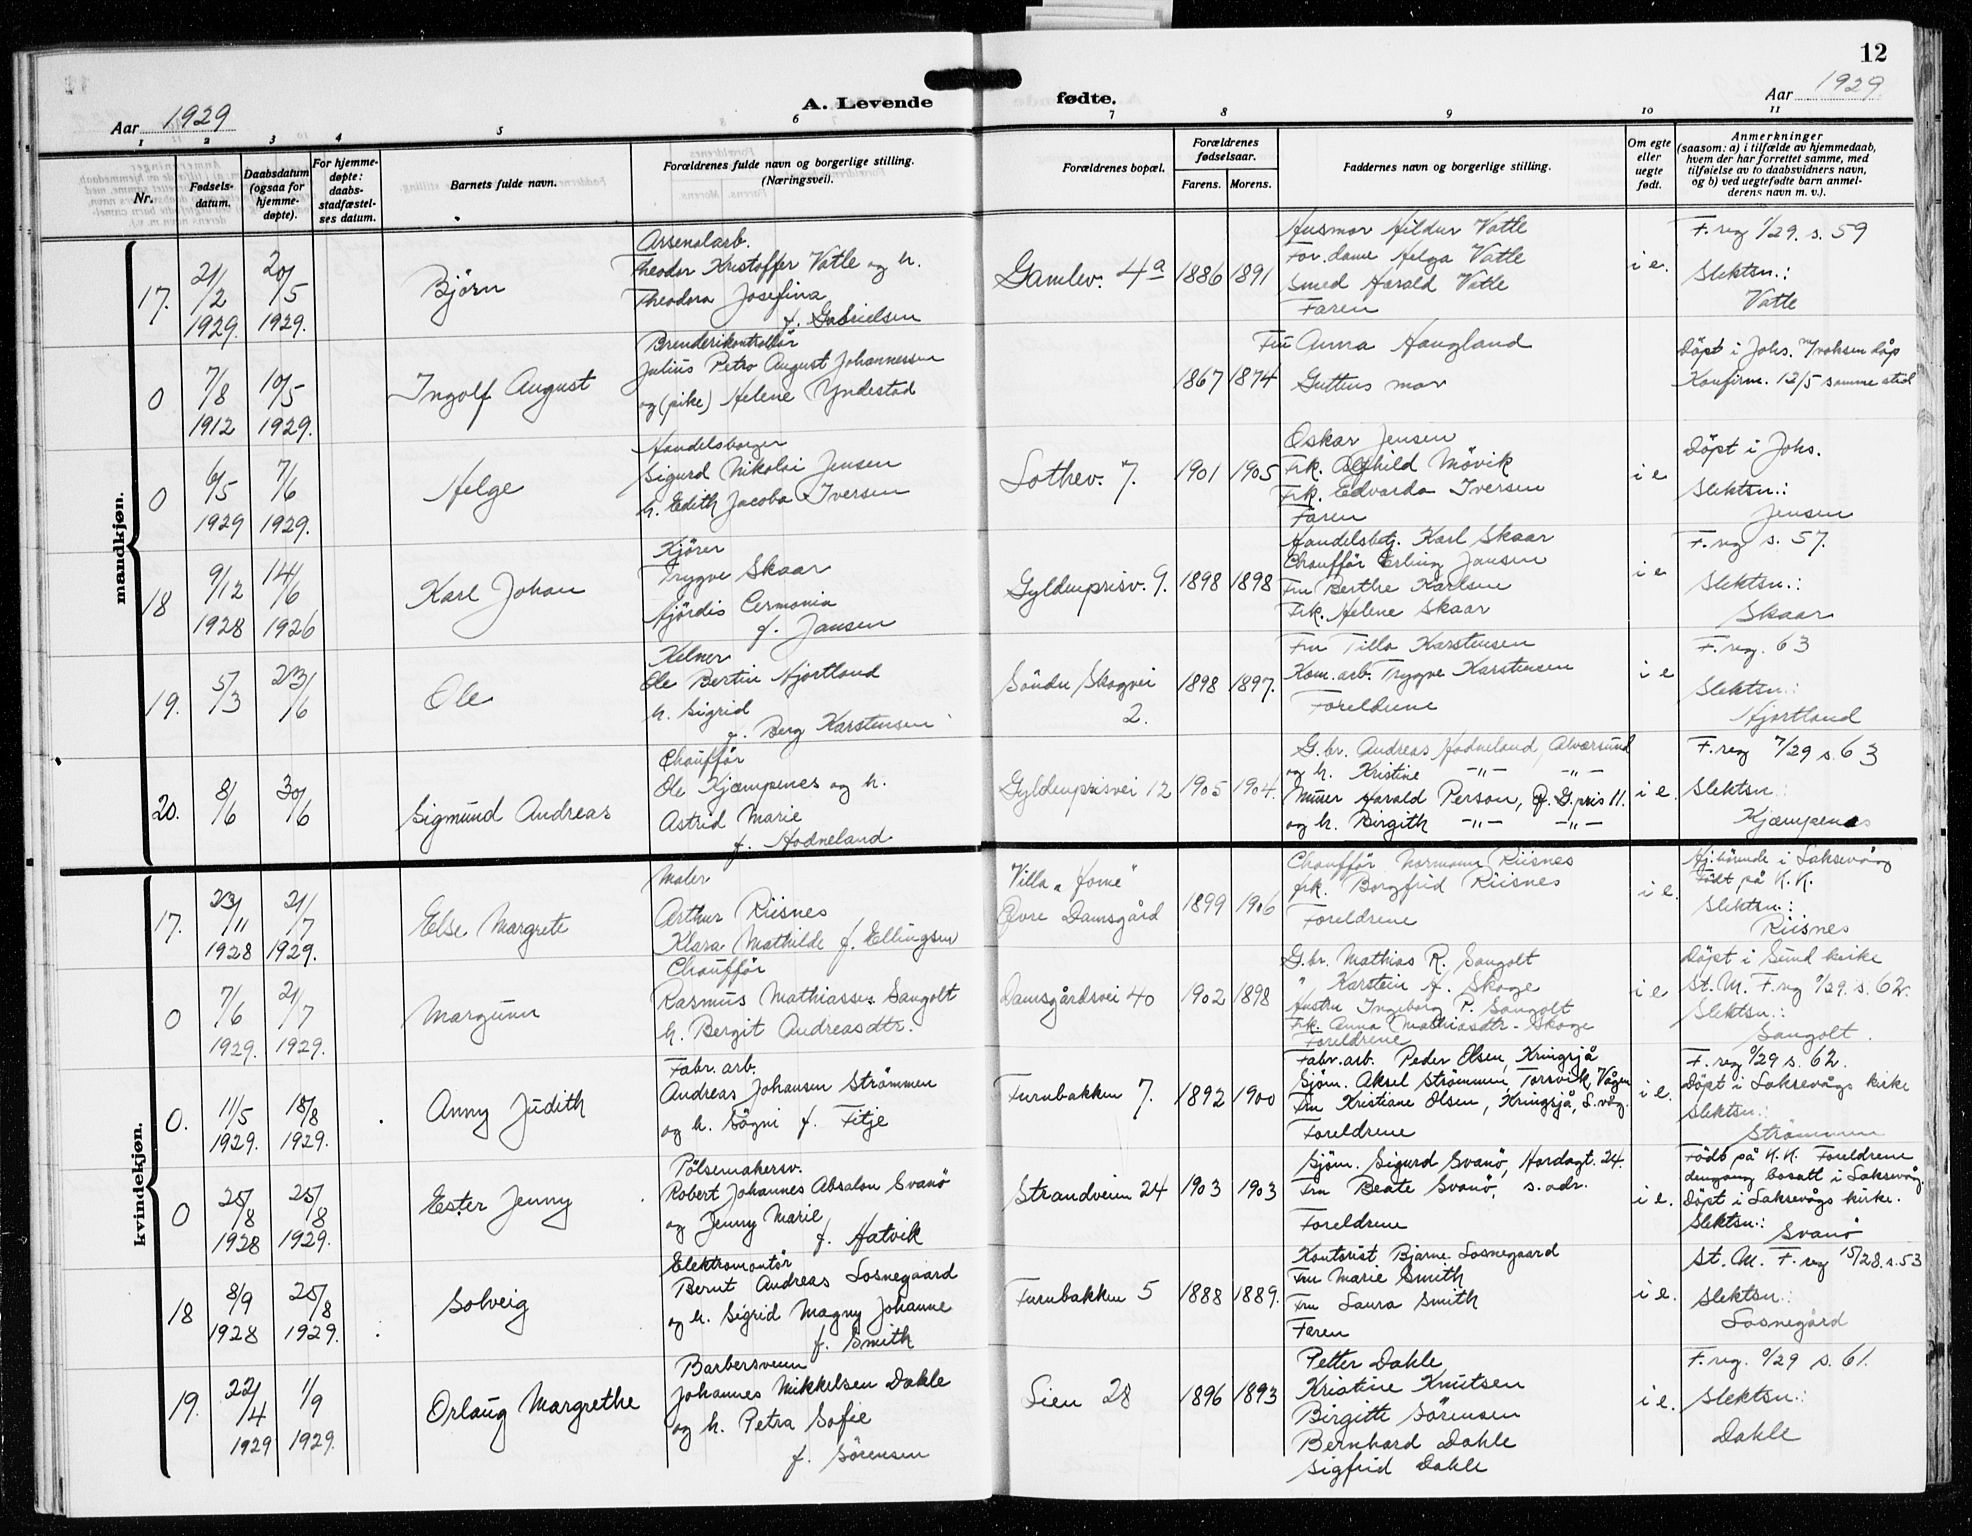 12
Aar 1929
A. Levende
fødte.
Aar 1929
1 2 3 4 5 6 7 8 9 10 11
Nr.
Fødsels-
datum.
Daabsdatum
(ogsaa for
hjemme-
døpte).
For hjemme-
døpte:
daabs-
stadfæstel-
ses datum.
Barnets fulde navn.
Forældrenes fulde navn og borgerlige stilling.
(Næringsvei).
Forældrenes bopæl.
Forældrenes
fødselsaar.
Farens. Morens.
Faddernes navn og borgerlige stilling.
Om egte
eller
uegte
født.
Anmerkninger
(saasom: a) i tilfælde av hjemmedaab,
hvem der har forrettet samme, med
tilføielse av to daabsvidners navn,
og b) ved uegtefødte barn anmel-
derens navn m. v.).
mandkjøn.
17.
21/2
1929.
20/5
1929.
Björn
Arsenalarb.
Theodor Kristoffer Vatle og h.
Theodora Josefina
f. Gabrielsen
Gamlev. 4a
1886 1891
Husmor Hildur Vatle
For. dame Helga Vatle
Smed Harald Vatle
Faren
i e.
F. reg 1/29. s. 59
Slektsn.:
Vatle
0
7/8
1912
10/5
1929.
Ingolf August
Brenderikontrollör
Julius Petro August Johannessen
og (pike) Helene Yndestad
1867 1874
Fru Anna Haugland
Guttens mor
Döpt i Johs. m/voksen dåp
Konfirm. 12/5 samme sted
0
6/5
1929
7/6
1929.
Helge
Handelsborger
Sigurd Nikolai Jensen
h. Edith Jacoba Iversen
Lothev. 7.
1901 1905
Oskar Jensen
Frk. Alfhild Mövik
Frk. Edvarda Iversen
Faren
i e
Döpt i Johs.
Slektsn.:
Jensen
18
9/12
1928
14/6
1926
Karl Johan
Kjörer
Trygve Skaar
Hjördis Cermonia
f. Jansen
Gyldenprisv. 9.
1898 1898
Handelsbetj. Karl Skaar
Chaufför Erling Jansen
Fru Berthe Karlsen
Frk. Helene Skaar
i e
F. reg s. 57.
Slektsn.:
Skaar
19.
5/3
23/6
Ole
Kelner
Ole Bertin Hjortland
h. Sigrid
f. Berg Karstensen
Söndre Skogvei
2.
1898 1897.
Fru Tilla Karstensen
Kom. arb. Trygve Karstensen
Foreldrene
i e
F. reg. 63
Slektsn.:
Hjortland
20.
8/6
30/6
Sigmund Andreas
Chaufför
Ole Kjæmpenes og h.
Astrid Marie
f. Hodneland
Gyldenprisvei 12
1905 1904.
G.br. Andreas Hodneland, Alversund
og h. Kristine -"- -"-
Murer Harald Person, G. pris 11.
og h. Birgith -"- -"-
i e.
F. reg 7/29 s 63
Slektsn.:
Kjæmpenes
kvindekjøn.
17.
23/11
1928
21/7
1929.
Else Margrete
Maler
Arthur Riisnes
Klara Mathilde f. Ellingsen
Villa "Home"
Övre Damsgård
1899 1906
Chaufför Normann Riisnes
frk. Borgfrid Riisnes
Foreldrene
i e.
Hj. hörende i Laksevåg
Födt på K.K.
Slektsn.:
Riisnes
0
7/6
1929.
21/7
1929.
Margunn
Chaufför
Rasmus Mathiassen Sangolt
h. Bergit Andreasdtr.
Damsgårdsvei 40
1902 1898
G.br. Mathias R. Sangolt
" Karstein A. Skoge
Hustru Ingeborg P. Sangolt
Frk. Anna Mathiasdtr. Skoge
Foreldrene
i e
Döpt i Sund kirke
St. M. F. reg 9/29. s. 62.
Slektsn.:
Sangolt.
0.
11/5
1929.
18/8
1929.
Anny Judith
Fabr. arb.
Andreas Johansen Strömmen
og h. Sögni f. Fitje
Furubakken 7.
1892 1900
Fabr. arb. Peder Olsen, Kringsjå
Sjöm. Aksel Strömmen, Torsvik, Vågen
Fru Kristiane Olsen, Kringsjå, L.våg.
Foreldrene
i e.
F. reg 9/29 s. 62.
Döpt i Laksevågs kirke
Slektsn.:
Strömmen
0
25/8
1928
25/8
1929.
Ester Jenny
Pölsemakersv.
Robert Johannes Absalon Svanö
og Jenny Marie
f. Hatvik
Strandveien 24
1903 1903
Sjöm. Sigurd Svanö, Hardagt. 24.
Fru Beate Svanö, s. adr.
Foreldrene
i e.
Födt på K.K. Foreldrene
dengang bosatt i Laksevåg.
Döpt i Laksevågs kirke.
Slektsn.:
Svanö
18
8/9
1928
25/8
1929.
Solveig
Elektromontör
Bernt Andreas Losnegaard
og h. Sigrid Magny Johanne
f. Smith
Furubakken 5
1888 1889.
Kontorist Bjarne Losnegaard
Fru Marie Smith
Fru Laura Smith
Faren
i e.
St. M. F. reg 15/28. s. 53
Slektsn.:
Losnegård
19.
22/4
1929
1/9
1929.
Orlaug Margrethe
Barbersvenn
Johannes Mikkelsen Dahle
og h. Petra Sofie
f. Sörensen
Lien 28
1896 1893
Petter Dahle
Kristine Knutsen
Birgitte Sörensen
Bernhard Dahle
Sigfrid Dahle
i e.
F. reg. 9/29 s. 61.
Slektsn.:
Dahle